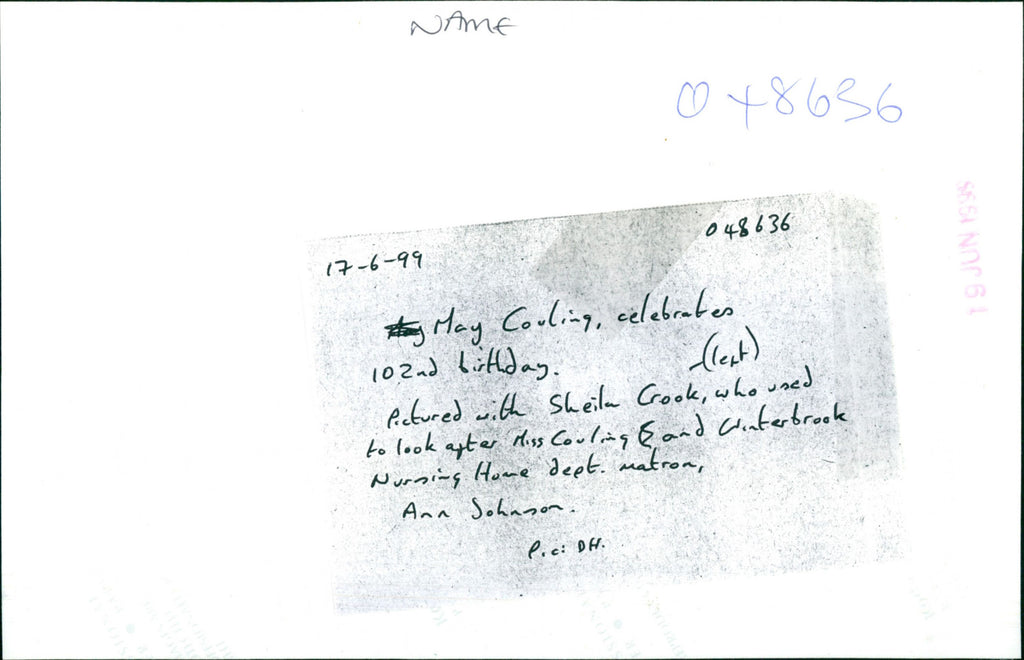 NAME
048636
048636
17-6-99
May Couling, celebrates
102nd birthday.
(left)
Pictured with Sheila Crook, who used
to look after Miss Couling & and Winterbrook
Nursing Home dept. matron,
Ann Johnson.
P.c: DH.